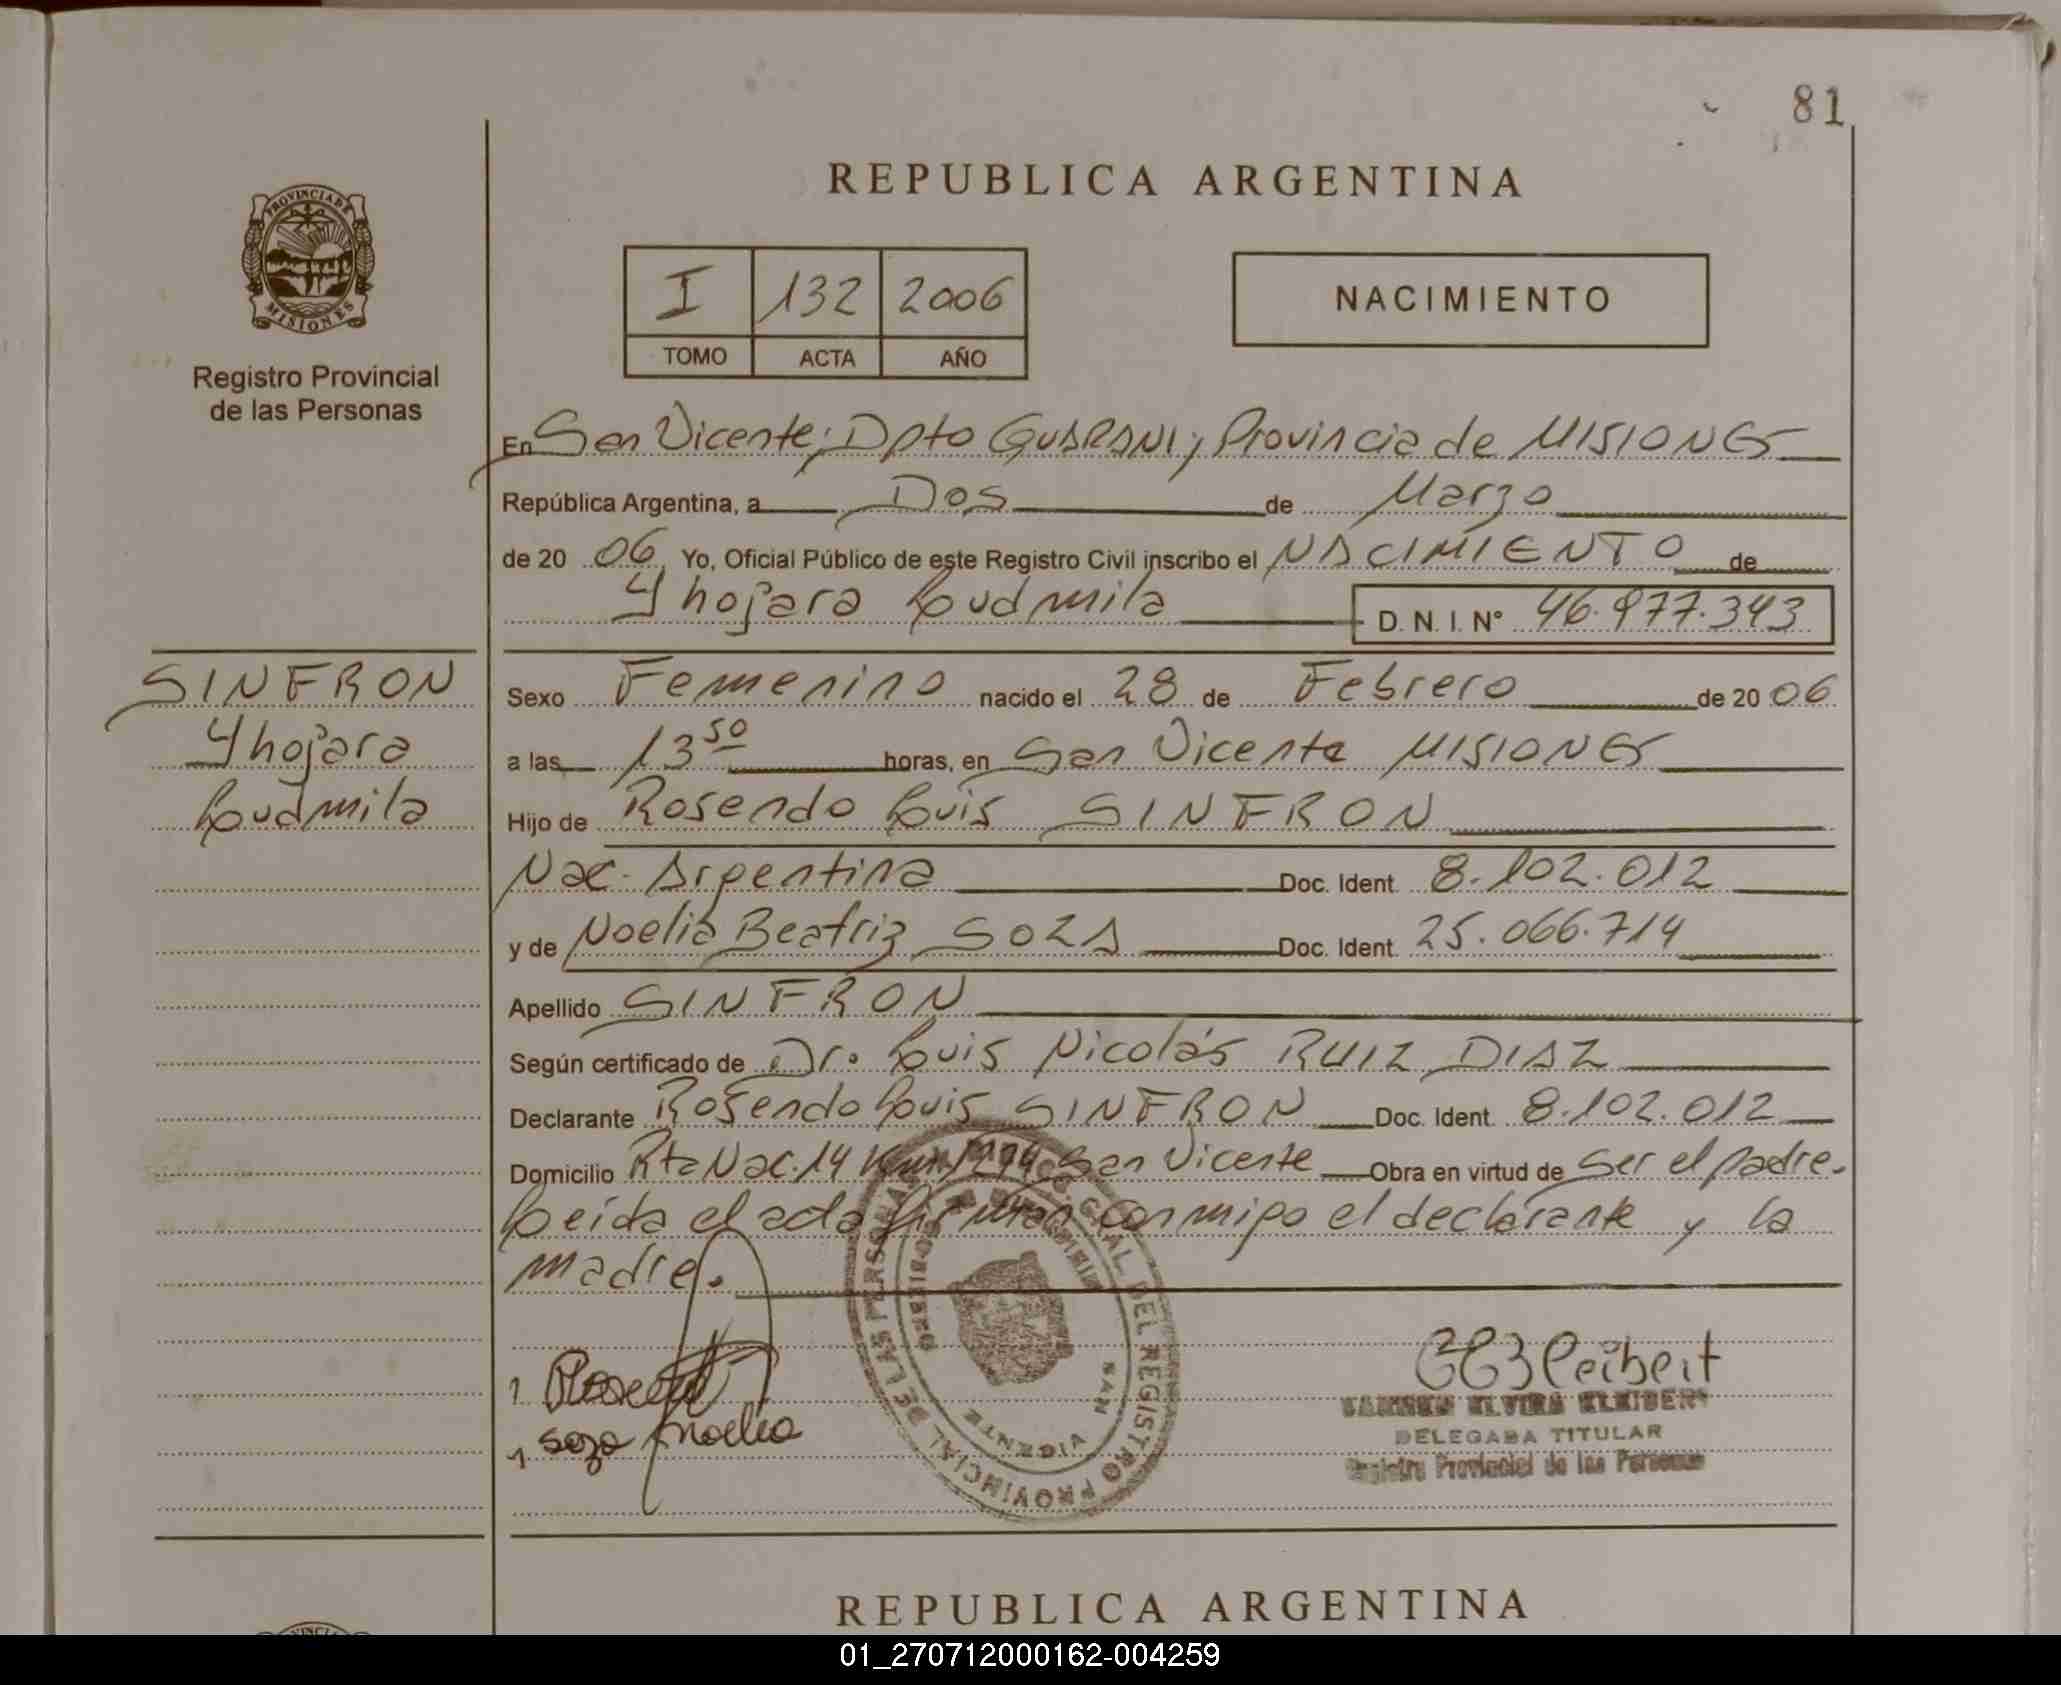 81
REPUBLICA ARGENTINA
PROVINCIA DE
MISIONES
Registro Provincial
de las Personas
I 132 2006
TOMO ACTA AÑO
NACIMIENTO
En San Vicente, Dpto GUARANI, Provincia de MISIONES
República Argentina, a Dos de Marzo
de 20 06 Yo, Oficial Público de este Registro Civil inscribo el NACIMIENTO de
Yhojara Ludmila D. N. I. N° 46.977.343
SINFRON
Yhojara
Ludmila
Sexo Femenino nacido el 28 de Febrero de 20 06
a las 13 50 horas, en San Vicente MISIONES
Hijo de Rosendo Luis SINFRON
Nac. Argentina Doc. Ident. 8.102.012
y de Noelia Beatriz SOZA Doc. Ident. 25.066.714
Apellido SINFRON
Según certificado de Dr. Luis Nicolás RUIZ DIAZ
Declarante Rosendo Luis SINFRON Doc. Ident. 8.102.012
Domicilio Rta Nac. 14 Km. San Vicente Obra en virtud de ser el padre.
Leída el acta firman conmigo el declarante y la
madre.
1.
1. Soza Noelia
GRAL. DEL REGISTRO PROVINCIAL DE LAS PERSONAS
SAN VICENTE
ELVIRA
DELEGADA TITULAR
Registro Provincial de las Personas
REPUBLICA ARGENTINA
01_270712000162-004259